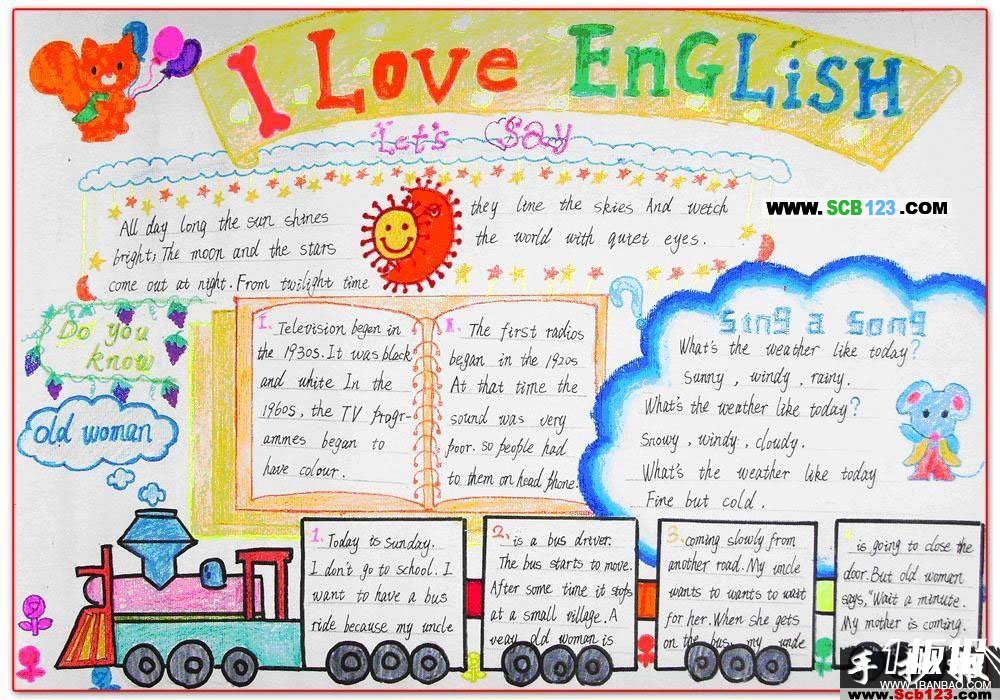 I LOVE ENGLiSH
Let's say
All day long the sun shines
bright; The moon and the stars
come out at night. From twilight time
they line the skies And wetch
the world with quiet eyes.
WWW.SCB123.COM
Do you
know
old woman
I. Television began in
the 1930s. It was black
and white In the
1960s, the TV progr-
ammes began to
have colour.
II. The first radios
began in the 1920s
At that time the
sound was very
poor. so people had
to them on head phone.
?
Sing a song
What's the weather like today?
Sunny, windy, rainy.
What's the weather like today?
Snowy, windy, cloudy.
What's the weather like today
Fine but cold.
1. Today is Sunday.
I don't go to school. I
want to have a bus
ride because my uncle
2. is a bus driver.
The bus starts to move.
After some time it stops
at a small village. A
veay old woman is
3. coming slowly from
another road. My uncle
wants to wants to wait
for her. When she gets
on the bus, my uncle
is going to close the
door. But old woman
says, "Wait a minute.
My mother is coming.
WWW.1BANBAO.COM
www.Scb123.com